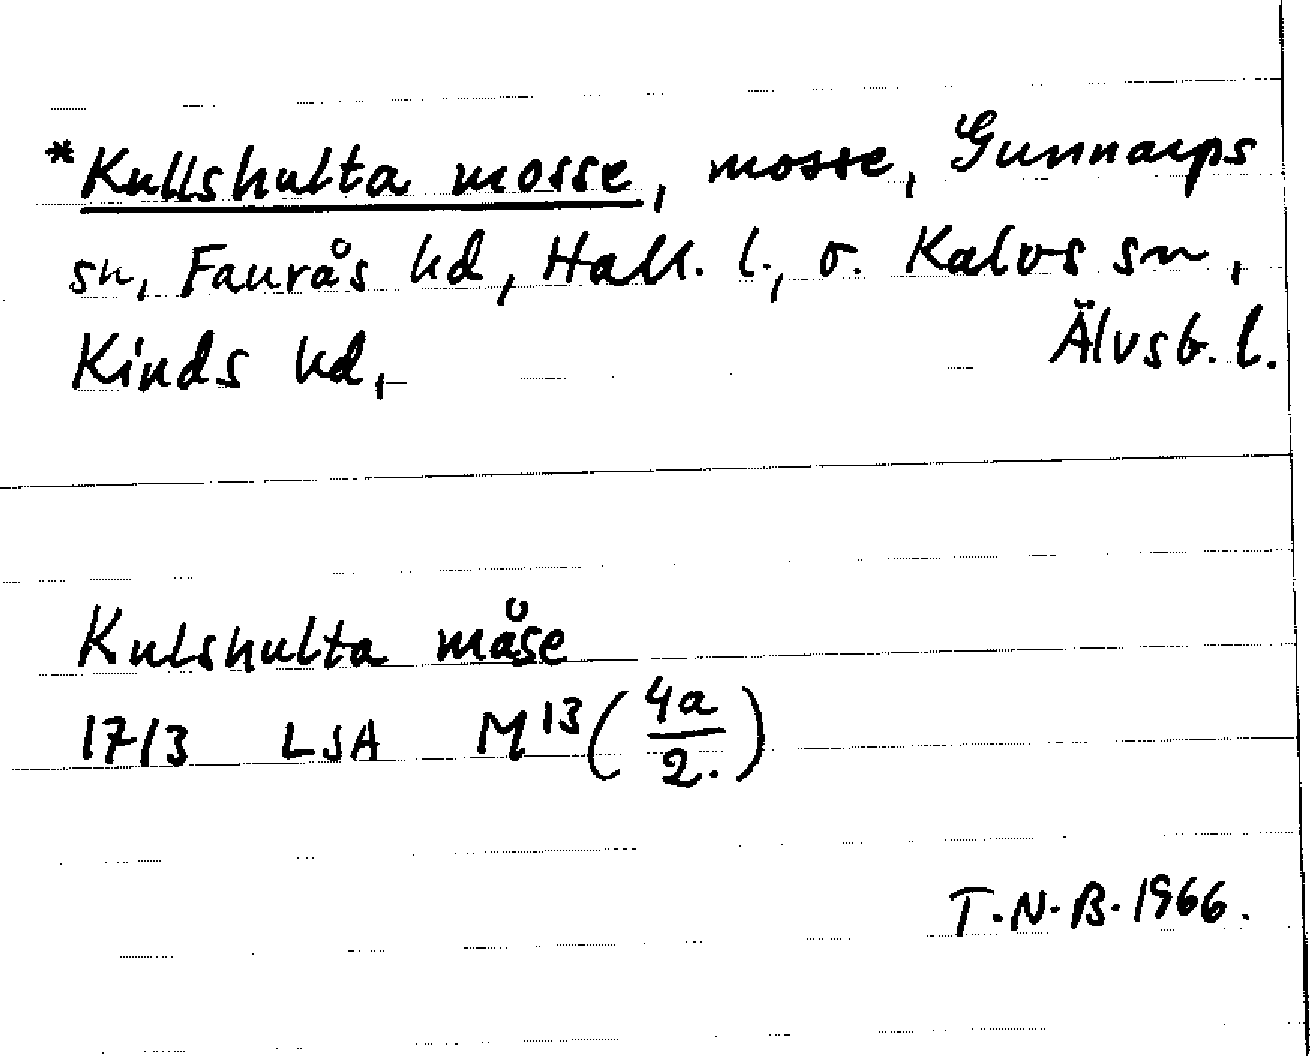 *Kullshulta mosse, mosse, Gunnarps
sn, Faurås hd, Hall. l., o. Kalvs sn,
Kinds hd, Älvsb. l.
Kulshulta måse
1713 LSA M¹³ (4a/2.)
T.N.B. 1966.